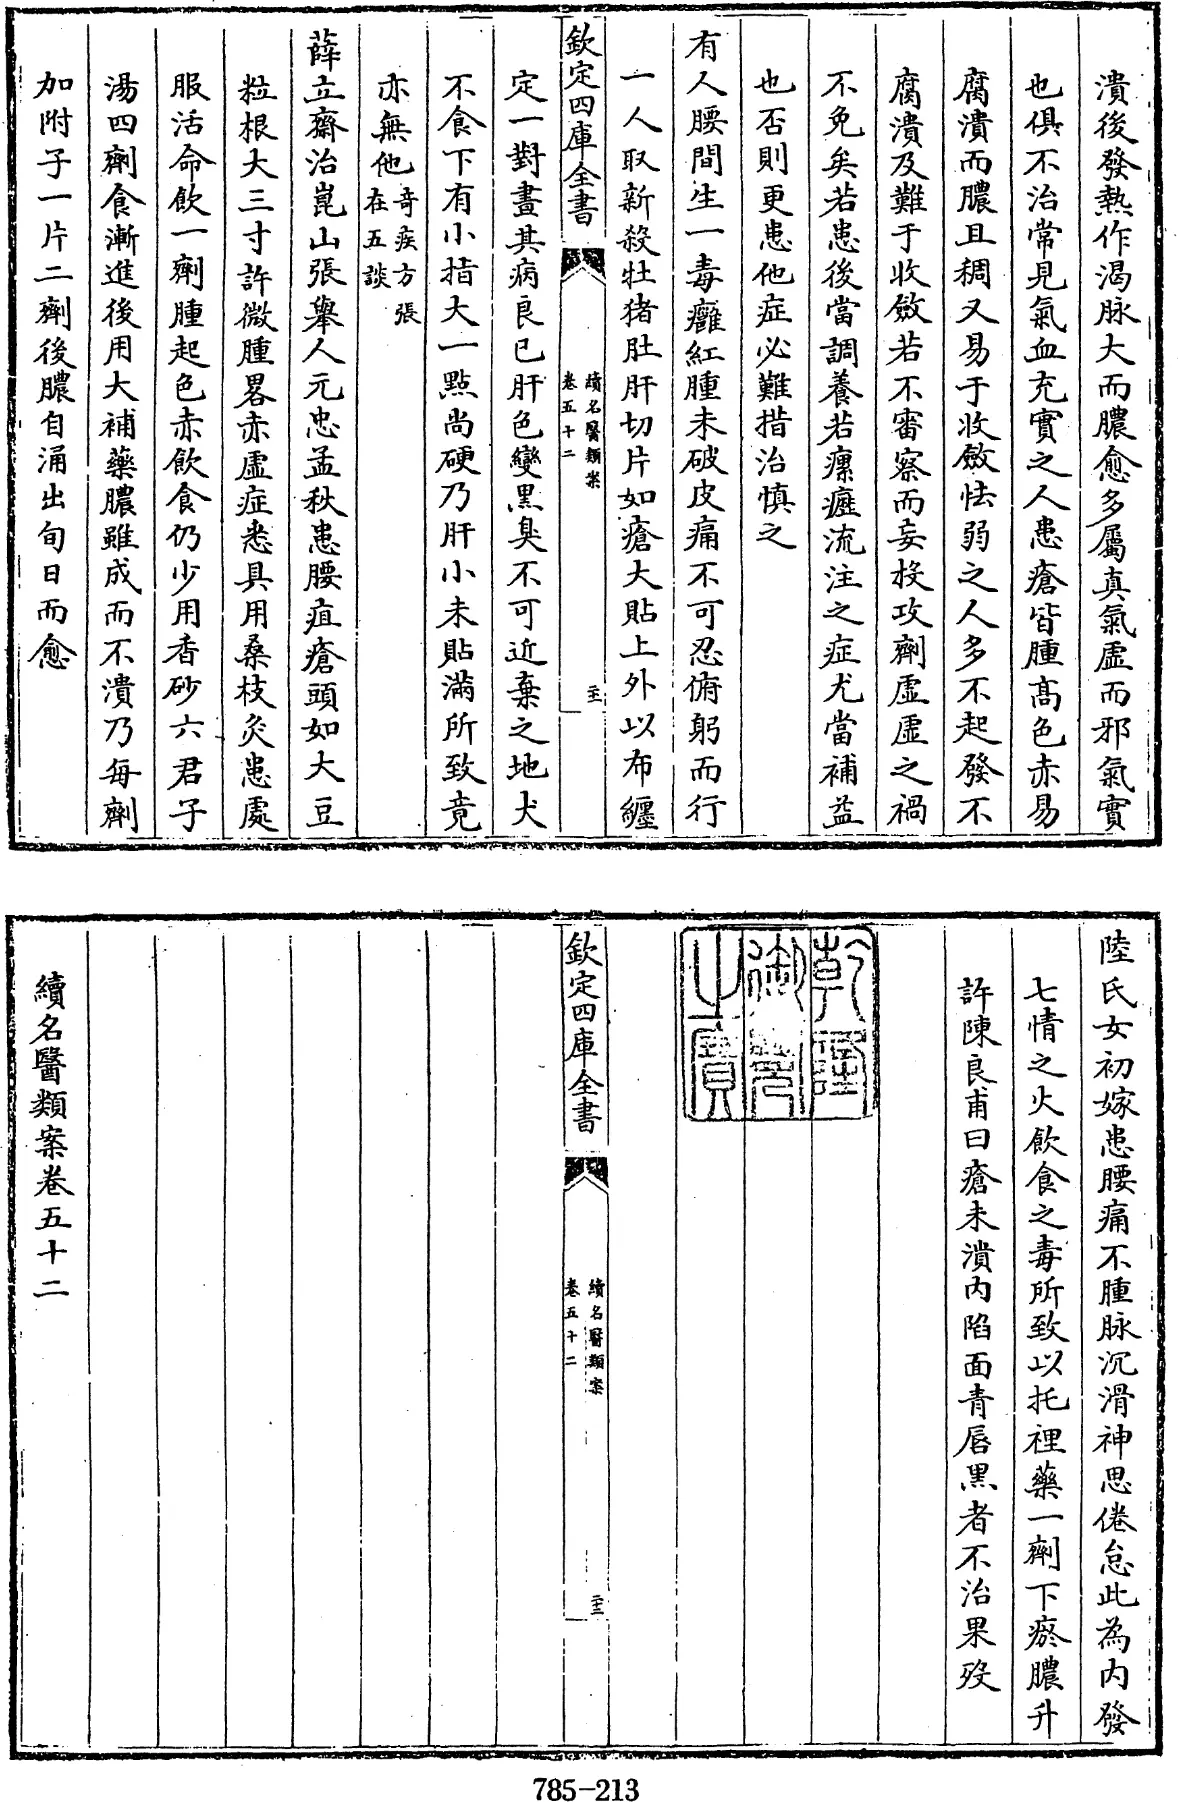 潰後發熱作渴脉大而膿愈多屬真氣虛而邪氣實
也俱不治常見氣血充實之人患瘡皆腫髙色赤易
腐潰而膿且稠又易于收斂怯弱之人多不起發不
腐潰及難于收斂若不審察而妄投攻劑虛虛之禍
不免矣若患後當調養若瘰癧流注之症尤當補益
也否則更患他症必難措治慎之
有人腰間生一毒癰紅腫未破皮痛不可忍俯躬而行
一人取新殺牡猪肚肝切片如瘡大貼上外以布纏
欽定四庫全書
續名醫類案
卷五十二
二十一
定一對晝其病良已肝色變黑臭不可近棄之地犬
不食下有小指大一點尚硬乃肝小未貼滿所致竟
亦無他
奇疾方張
在五談
薛立齋治崑山張舉人元忠孟秋患腰疽瘡頭如大豆
粒根大三寸許微腫畧赤虛症悉具用桑枝灸患處
服活命飲一劑腫起色赤飲食仍少用香砂六君子
湯四劑食漸進後用大補藥膿雖成而不潰乃每劑
加附子一片二劑後膿自涌出旬日而愈
陸氏女初嫁患腰痛不腫脉沉滑神思倦怠此為内發
七情之火飲食之毒所致以托裡藥一劑下瘀膿升
許陳良甫曰瘡未潰内陷面青唇黑者不治果歿
乾隆
御覽
之寶
欽定四庫全書
續名醫類案
卷五十二
二十二
續名醫類案卷五十二
785-213